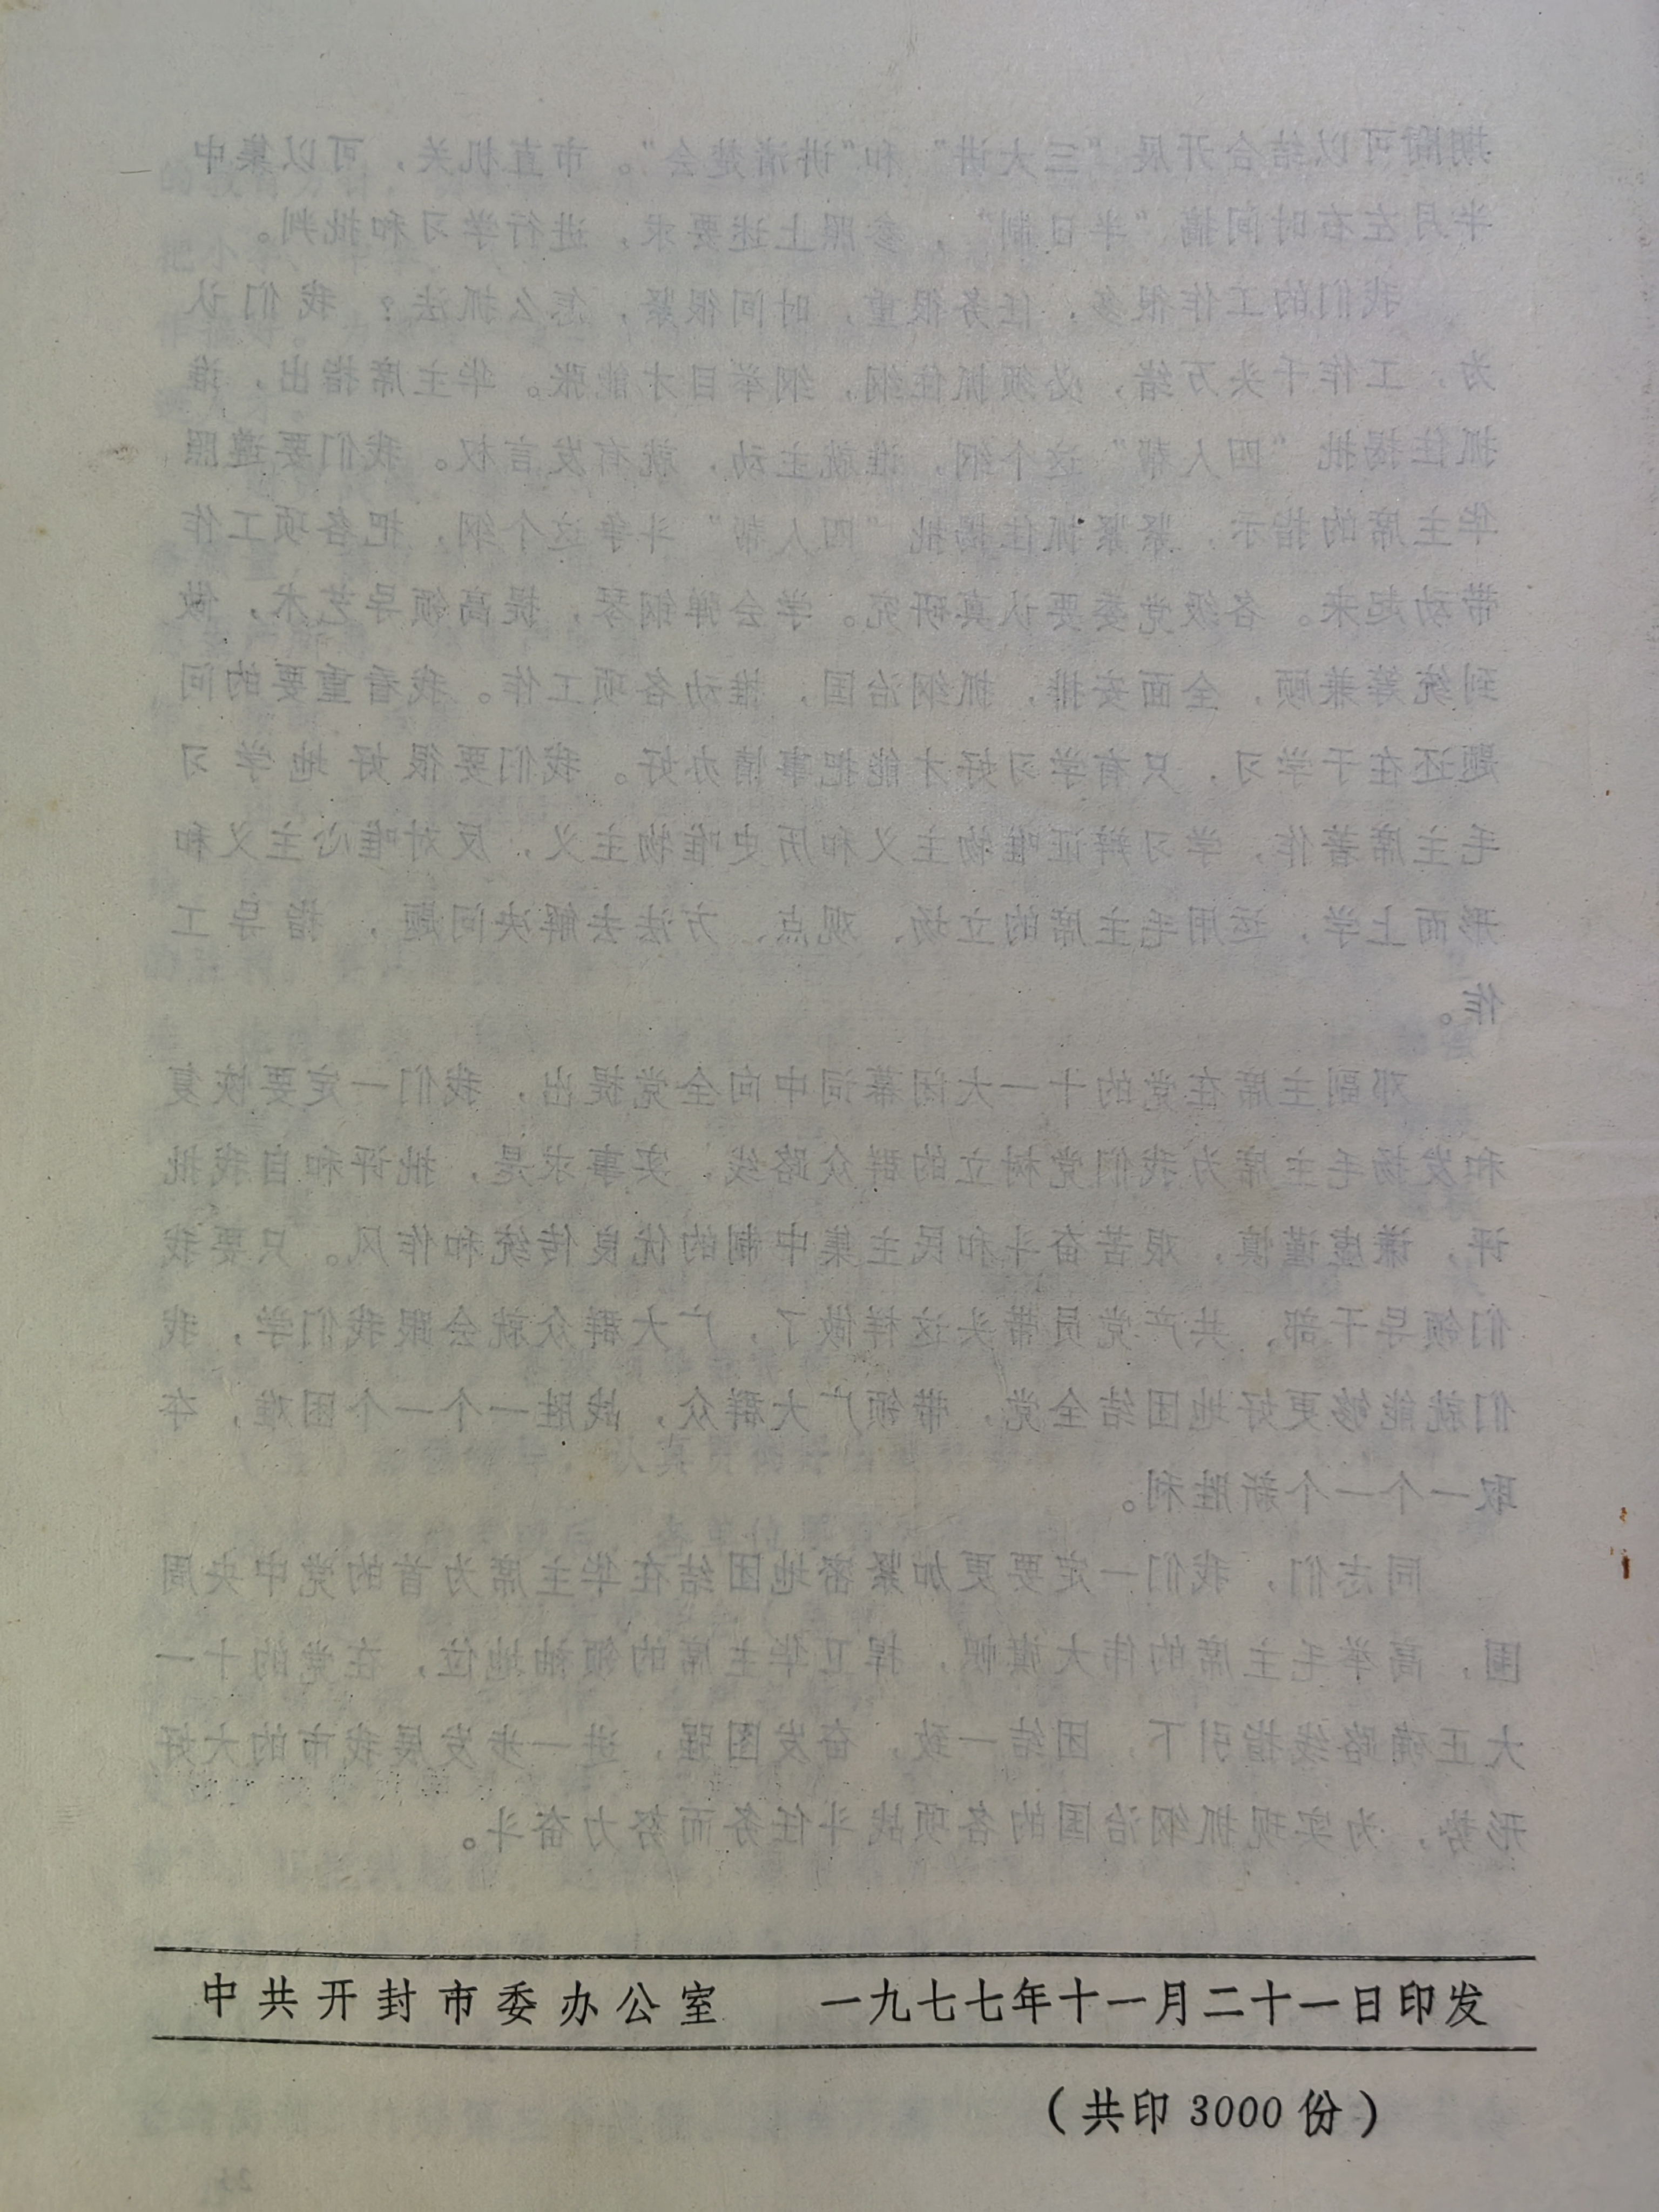 期间可以结合开展“三大讲”和“讲清楚会”。市直机关，可以集中
半月左右时间搞“半日制”，参照上述要求，进行学习和批判。
我们的工作很多，任务很重，时间很紧，怎么抓法？我们认
为，工作千头万绪，必须抓住纲，纲举目才能张。华主席指出，谁
抓住揭批“四人帮”这个纲，谁就主动，就有发言权。我们要遵照
华主席的指示，紧紧抓住揭批“四人帮”斗争这个纲，把各项工作
带动起来。各级党委要认真研究。学会弹钢琴，提高领导艺术，做
到统筹兼顾，全面安排，抓纲治国，推动各项工作。我看重要的问
题还在于学习，只有学习好才能把事情办好。我们要很好地学习
毛主席著作，学习辩证唯物主义和历史唯物主义，反对唯心主义和
形而上学，运用毛主席的立场、观点、方法去解决问题，指导工
作。
邓副主席在党的十一大闭幕词中向全党提出，我们一定要恢复
和发扬毛主席为我们党树立的群众路线、实事求是，批评和自我批
评，谦虚谨慎，艰苦奋斗和民主集中制的优良传统和作风。只要我
们领导干部，共产党员带头这样做了，广大群众就会跟我们学，我
们就能够更好地团结全党，带领广大群众，战胜一个一个困难，夺
取一个一个新胜利。
同志们，我们一定要更加紧密地团结在华主席为首的党中央周
围，高举毛主席的伟大旗帜，捍卫华主席的领袖地位，在党的十一
大正确路线指引下，团结一致，奋发图强，进一步发展我市的大好
形势，为实现抓纲治国的各项战斗任务而努力奋斗。
中共开封市委办公室 一九七七年十一月二十一日印发
（共印3000份）